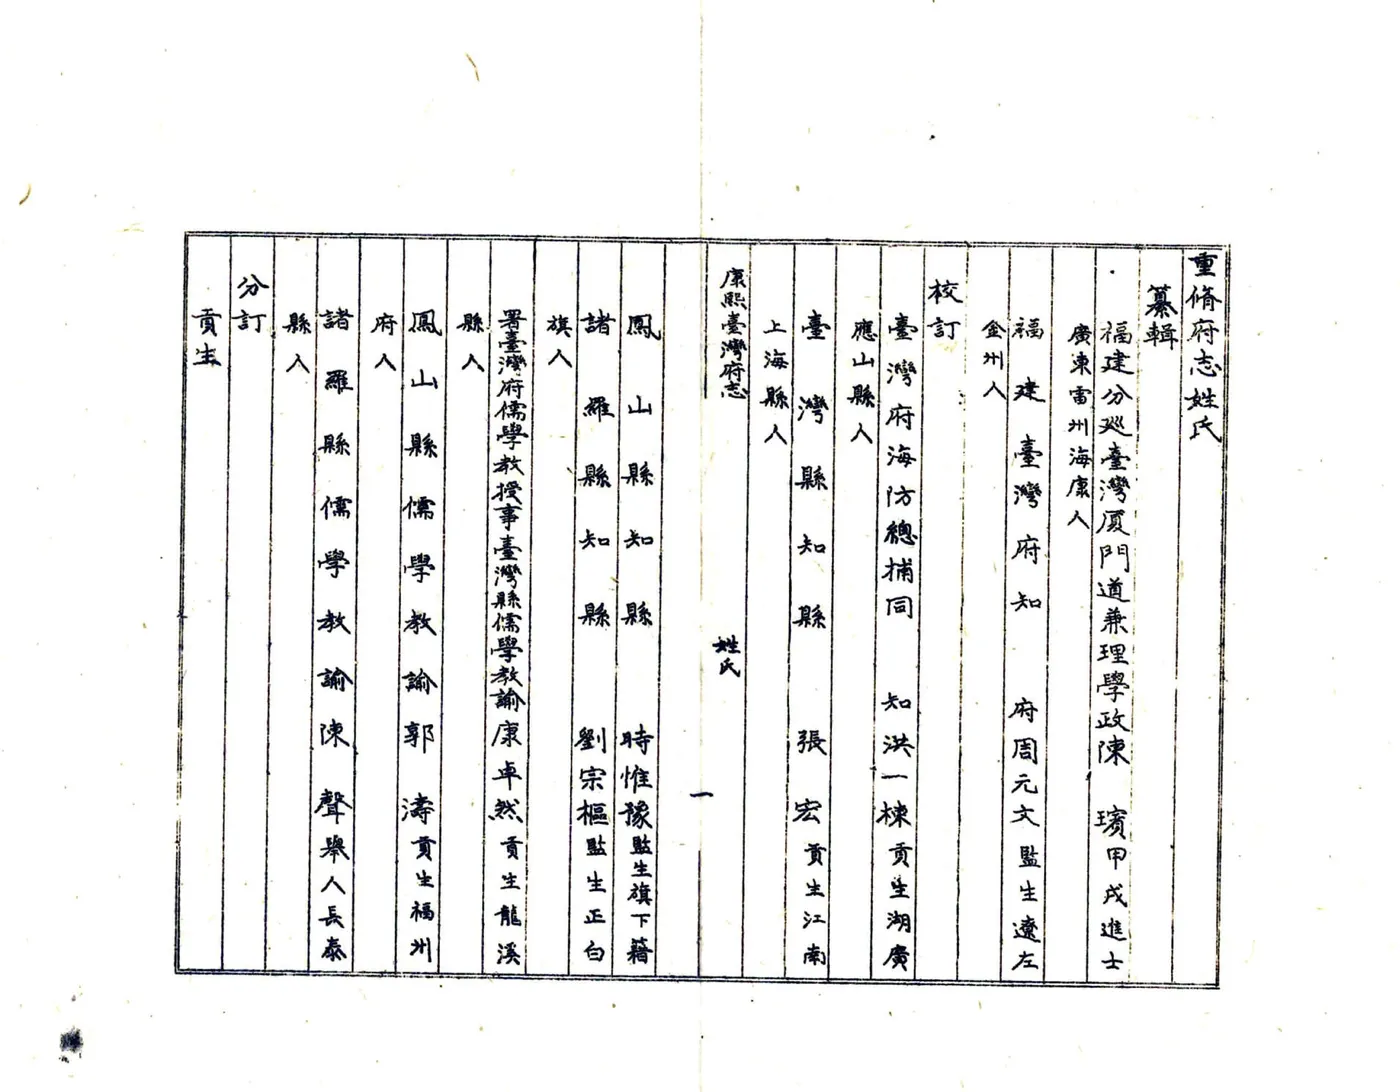 重脩府志姓氏
纂輯
福建分廵臺灣厦門道兼理學政陳 璸甲戌進士
廣東雷州海康人
福建臺灣府知 府周元文監生遼左
金州人
校訂
臺灣府海防總捕同 知洪一棟貢生湖廣
應山縣人
臺灣縣知縣 張 宏貢生江南
上海縣人
康熙臺灣府志 姓氏 一
鳳山縣知縣 時惟豫監生旗下籍
諸羅縣知縣 劉宗樞監生正白
旗人
署臺灣府儒學教授事臺灣縣儒學教諭康卓然貢生龍溪
縣人
鳳山縣儒學教諭郭 濤貢生福州
府人
諸羅縣儒學教諭陳 聲舉人長泰
縣人
分訂
貢生